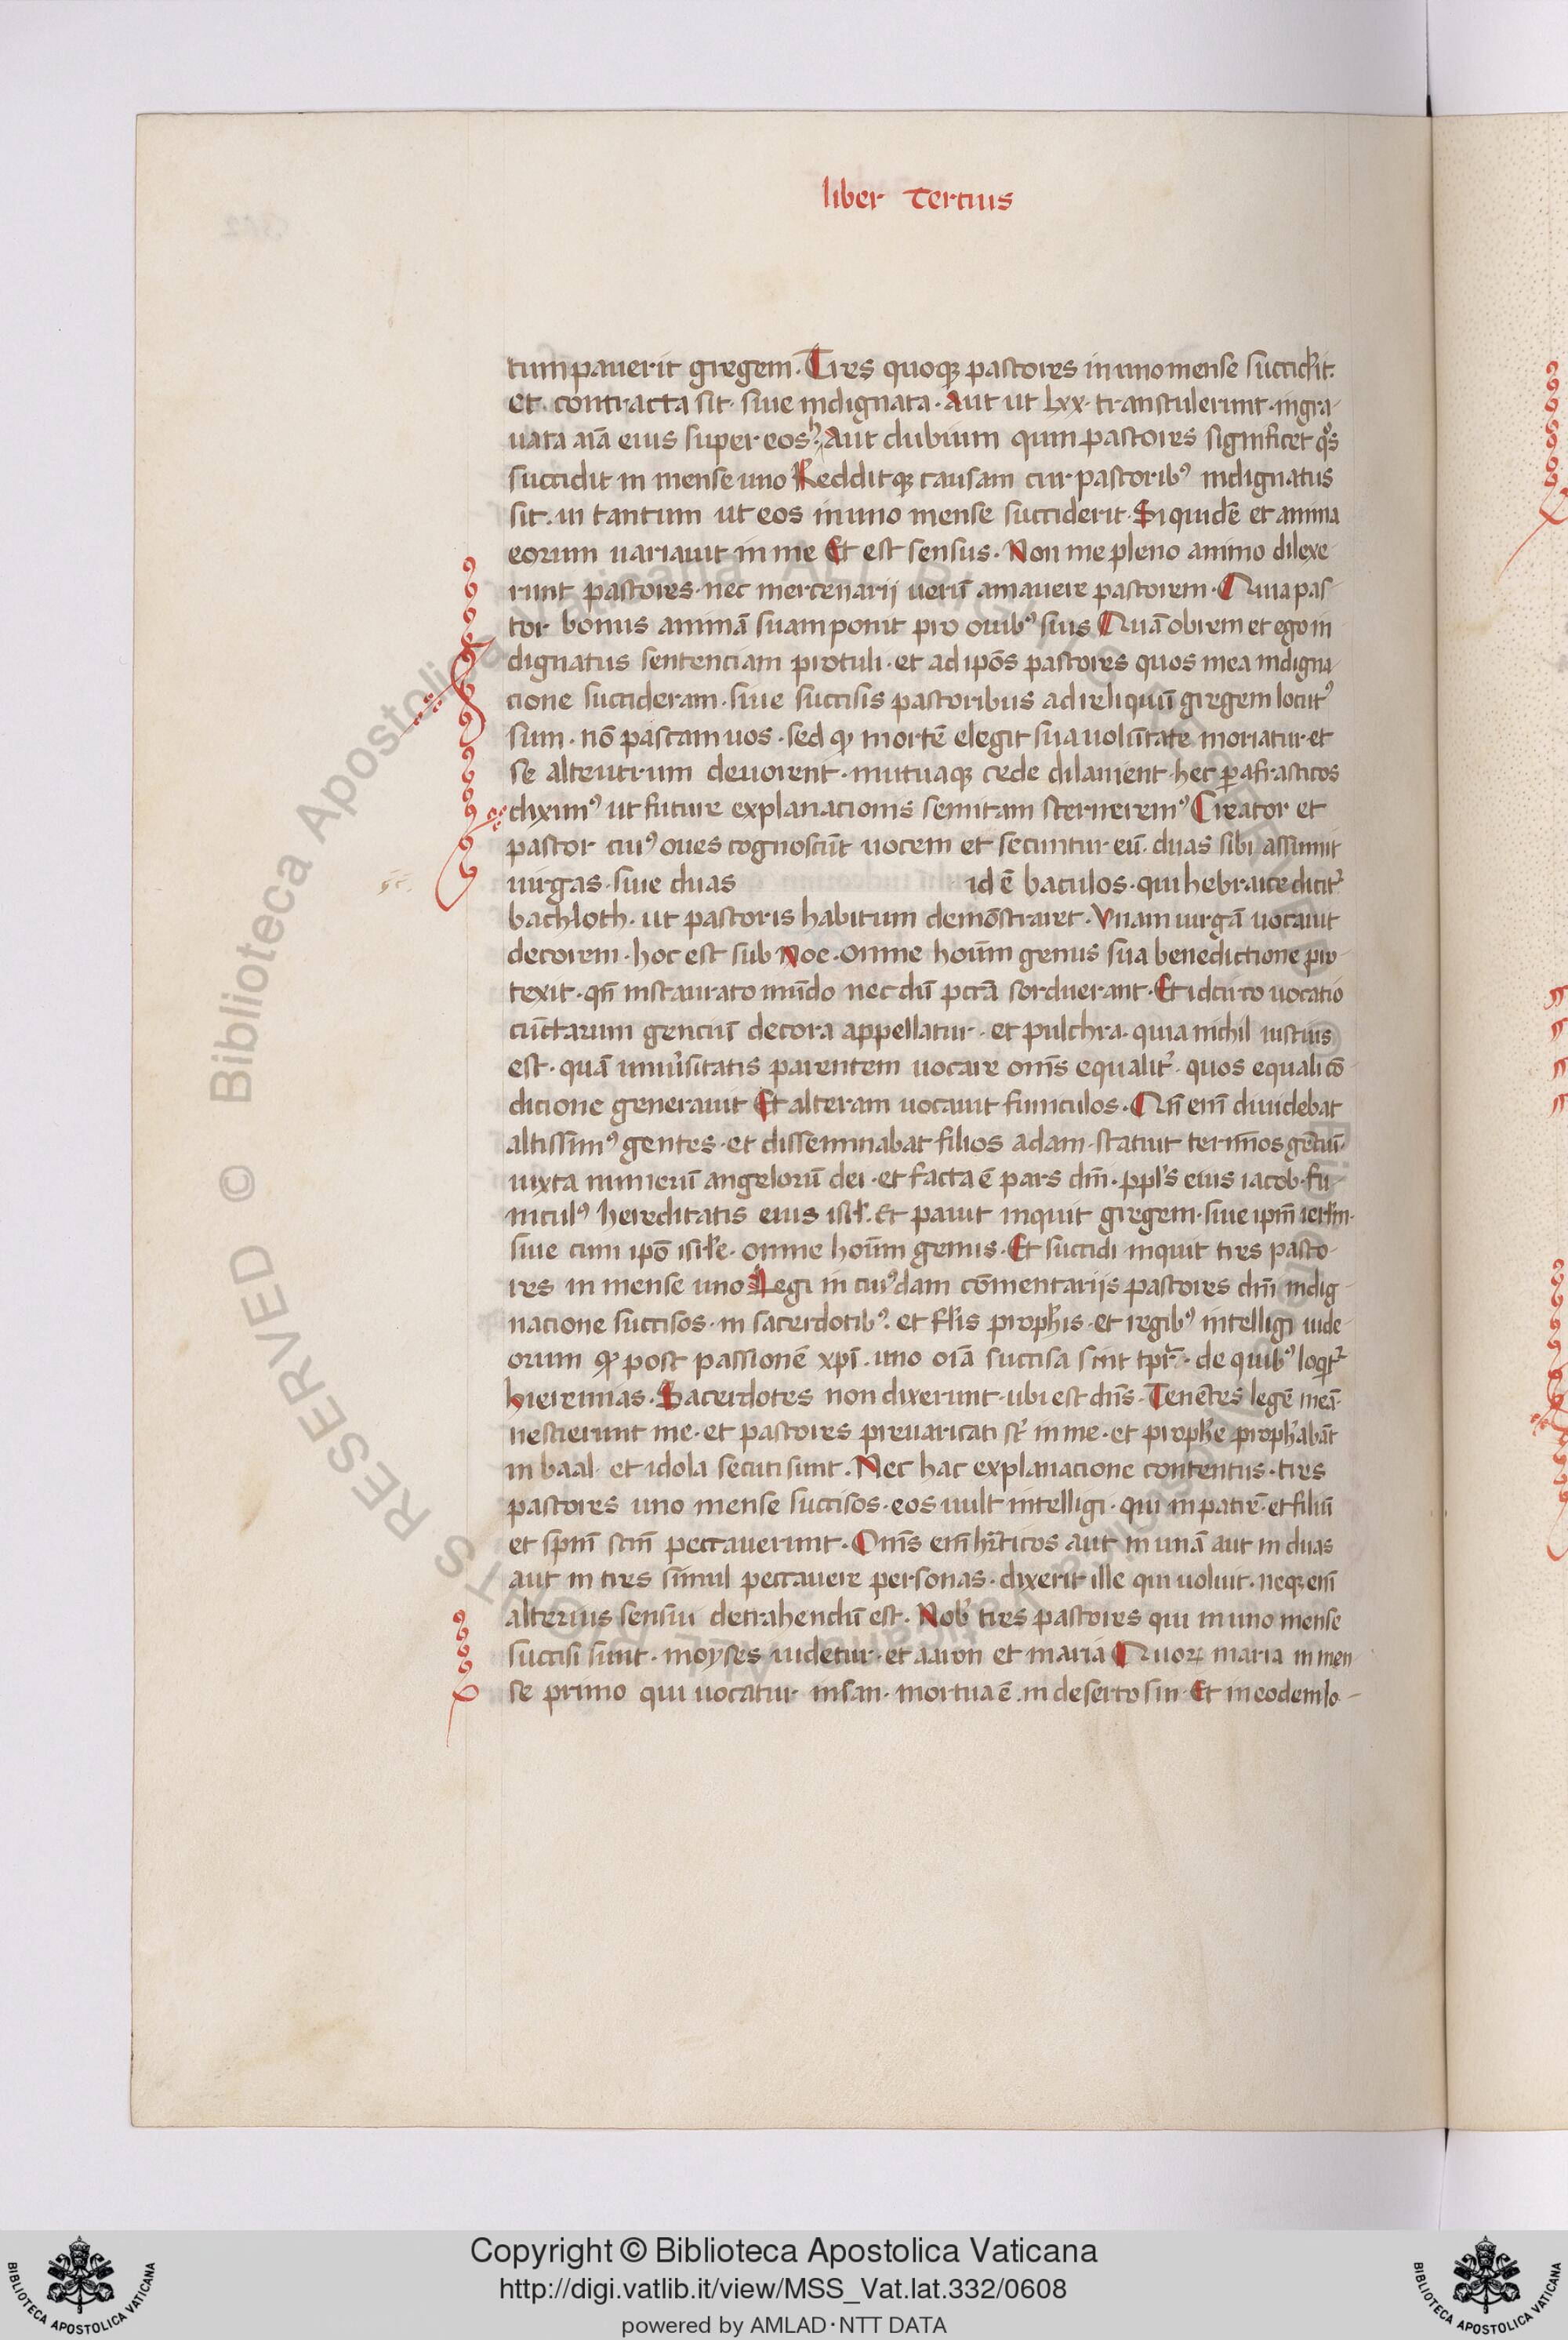 liber Tertius
tum pauerit gregem. Tres quoqꝫ pastores in uno mense succid'it.
et contracta sit. siue indignata. Aut ut lxx. transtulerunt. ingra-
uata aīa eius super eos. Aut dubium qum pastores significet q°s
succidit in mense uno Redditqꝫ causam cur pastoribꝰ indignatus
sit. in tantum ut eos in uno mense succiderit. Siquidē et anima
eorum uariauit in me Et est sensus. Non me pleno animo dilexe-
runt pastores. nec mercenarij uerū amauere pastorem. Quia pas-
tor bonus animā suam ponit pro ouibꝰ suis Quā obrem et ego in
dignatus sentenciam protuli. et ad ip̄os pastores quos mea indigna-
cione succideram. siue succisis pastoribus ad reliquū gregem locutꝰ
sum. nō pascam uos. sed qꝫ mortē elegit sua uolūtate moriatur. et
se alterutrum deuorent. mutuaqꝫ cede dilanient. hec ꝑafrasticos
diximꝰ ut future explanacionis semitam sterneremꝰ Creator et
pastor cuiꝰ oues cognoscūt uocem et secuntur eū. duas sibi assumit
uirgas. siue duas id ē baculos. qui hebraice dicit᷑
bachloth. ut pastoris habitum demōstraret. Vnam uirgā uocauit
decorem. hoc est sub Noe. omne hoīum genus sua benedictione pro-
texit. qn̄ instaurato mūdo nec dū pctā sorduerant. Et idcirco uocatio
cūctarum genciū decora appellatur. et pulchra. quia nichil iustius
est. quā uniu'sitatis parentem uocare om̄s equalit᷑. quos equali cō
dicione generauit Et alteram uocauit funiculos. Qn̄ em̄ diuidebat
altissimꝰ gentes. et disseminabat filios adam. statuit termīos gēciū.
iuxta numerū angelorū dei. et facta ē pars dn̄i. ppl's eius iacob. fu-
niculꝰ hereditatis eius isrl'. Et pauit inquit gregem. siue ipm̄ ierl'm.
siue cum ip̄o isrl'e. omne hoīum genus. Et succidi inquit tres pasto-
res in mense uno Legi in cuiꝰdam cōmentarijs pastores dn̄i indig-
nacione succisos. in sacerdotibꝰ. et fl'is proph'is. et regibꝰ intelligi iude-
orum qꝫ post passionē xpī. uno oīa succisa sint tp̄r̄. de quibꝰ loqt᷑
hieremias. Sacerdotes non dixerunt. ubi est dn̄s. Tenētes legē meā.
nescierunt me. et pastores preuaricati st̄ in me. et proph'e proph'abāt
in baal. et idola secuti sunt. Nec hac explanacione contentus. tres
pastores uno mense succisos. eos uult intelligi. qui in patrē. et filiū
et spm̄ scm̄ peccauerunt. Om̄s em̄ hr̄ticos aut in unā aut in duas
aut in tres simul peccauere personas. dixerit ille qui uoluit. neqꝫ em̄
alterius sensui detrahendū est. Nob' tres pastores qui in uno mense
succisi sunt. moyses uidetur. et aaron et maria Quoꝝ maria in men-
se primo qui uocatur insan. mortua ē. in deserto sin. Et in eodem lo-
Copyright © Biblioteca Apostolica Vaticana
http://digi.vatlib.it/view/MSS_Vat.lat.332/0608
powered by AMLAD·NTT DATA